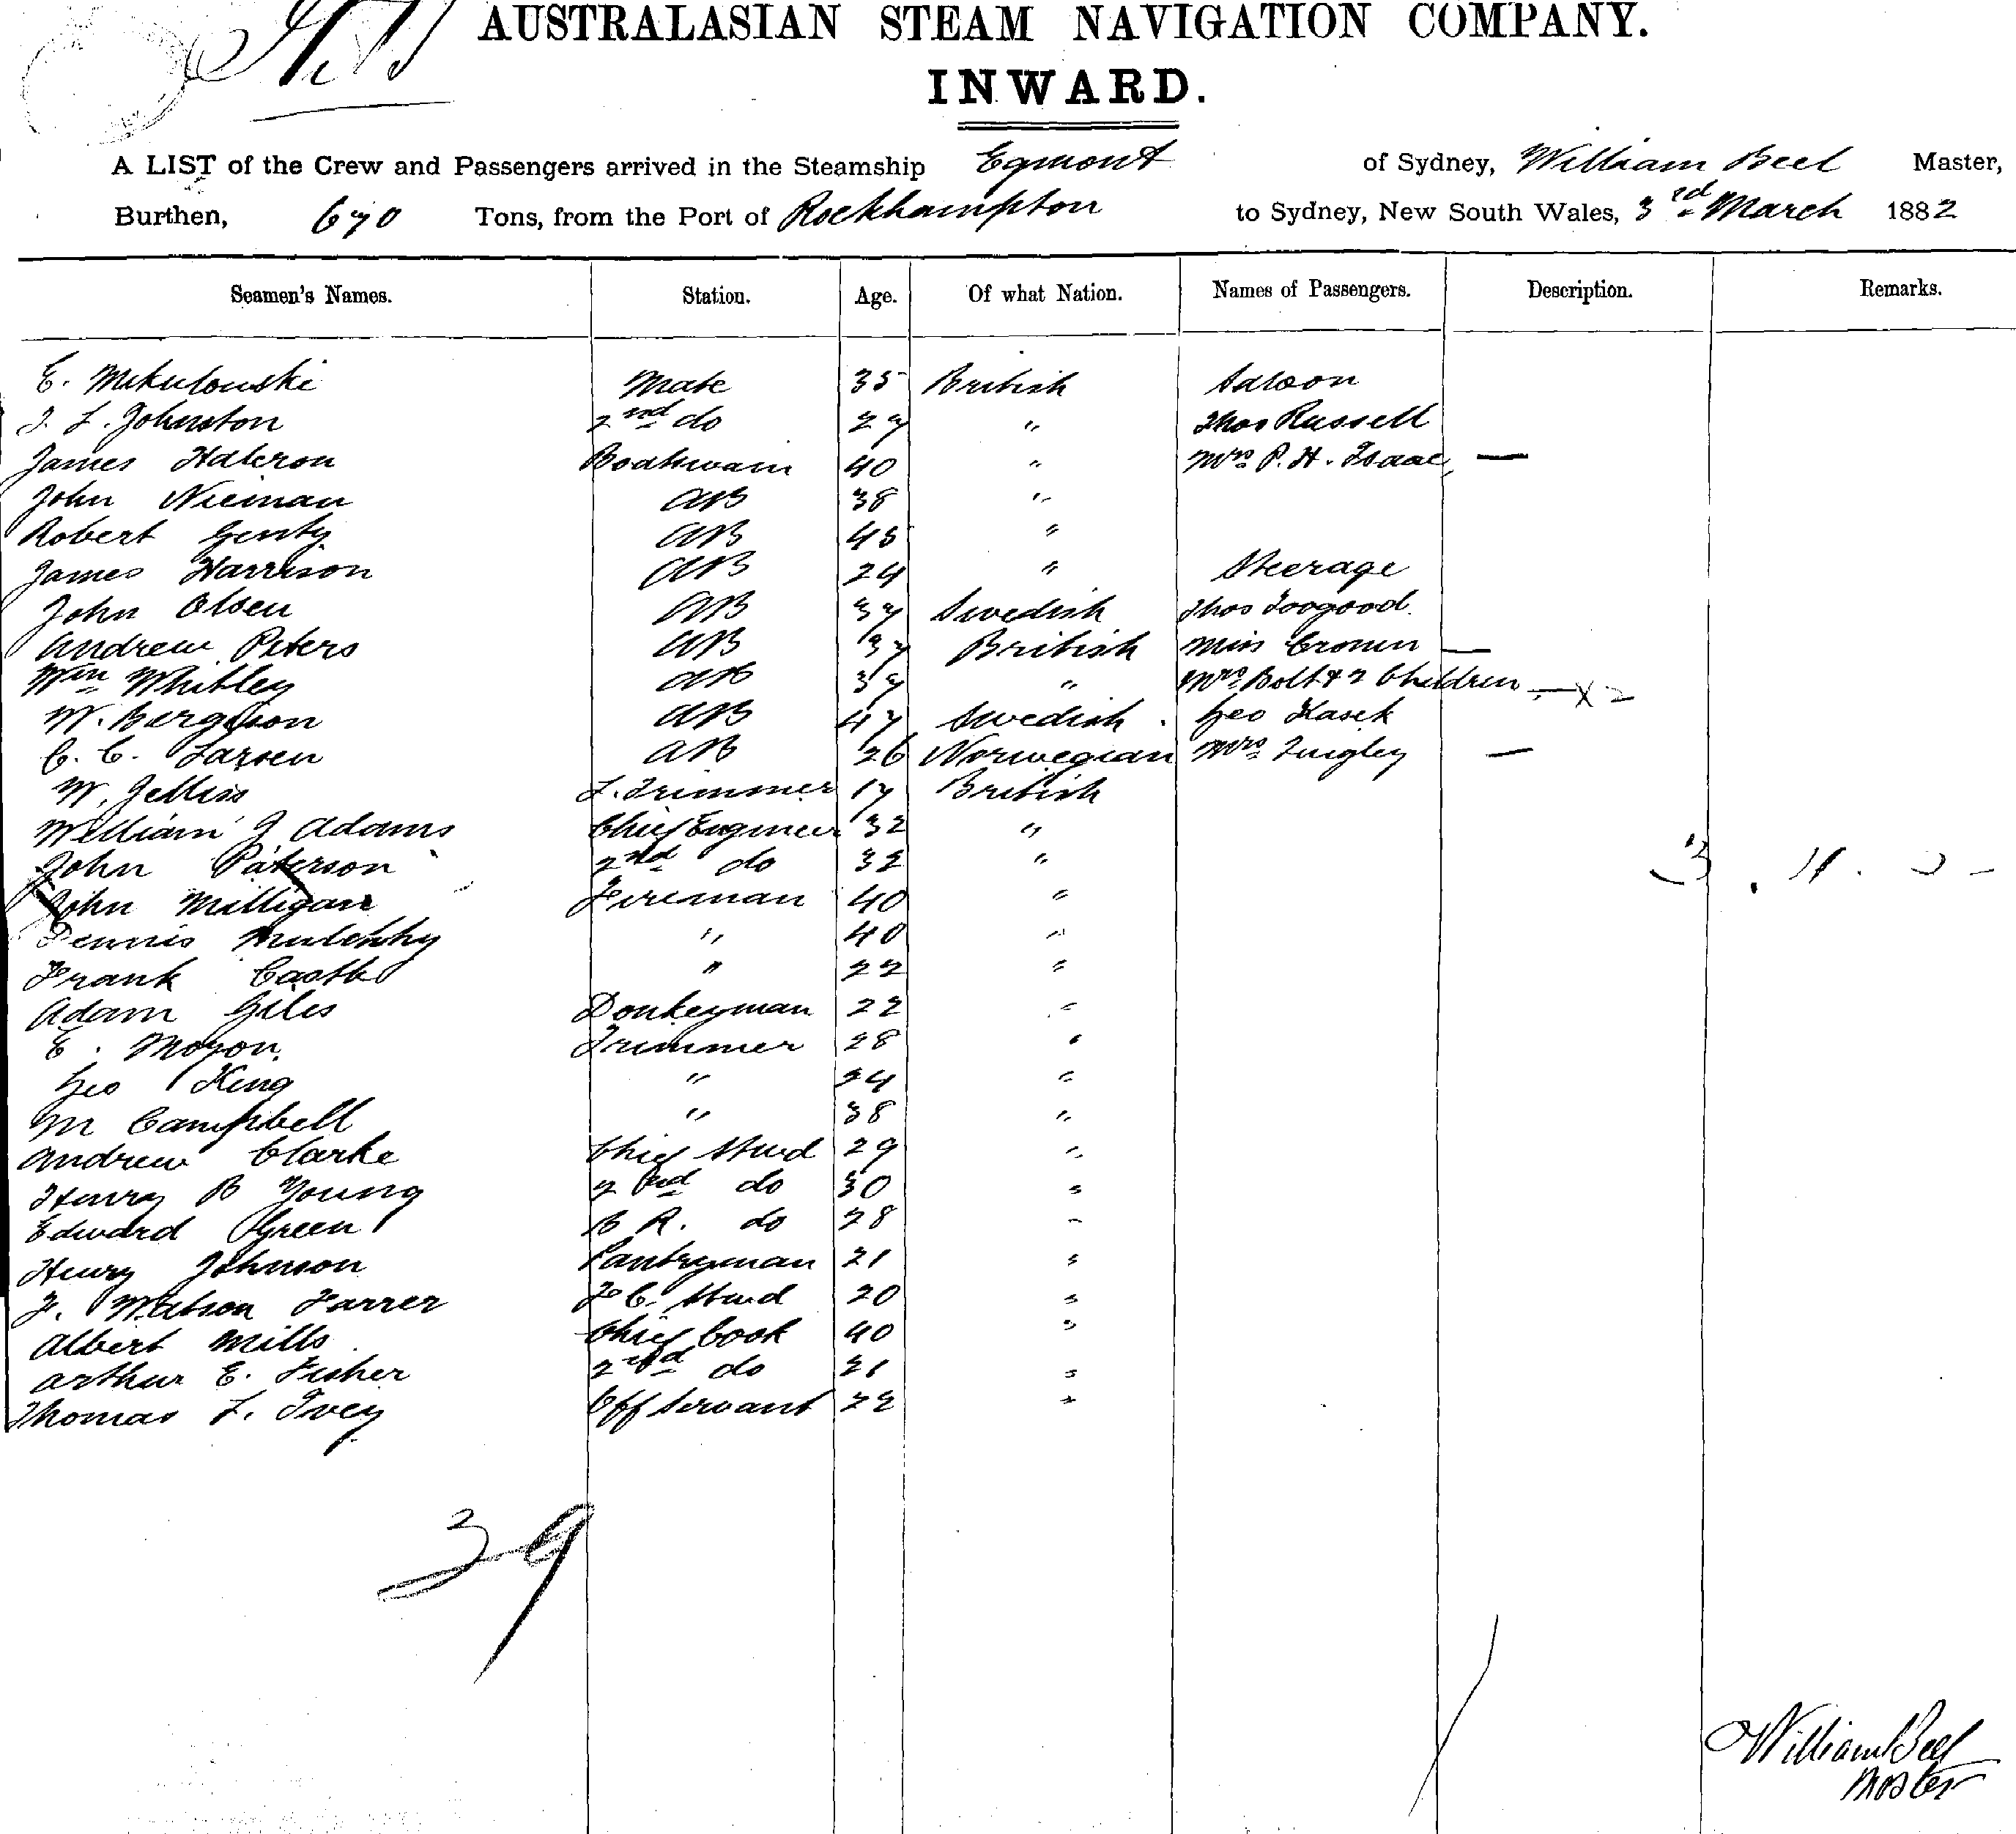 AUSTRALASIAN STEAM NAVIGATION COMPANY.
INWARD.
A LIST of the Crew and Passengers arrived in the Steamship Egmont of Sydney, William Beel Master,
Burthen, 690 Tons, from the Port of Rockhampton to Sydney, New South Wales, 3rd March 1882
Seamen's Names. Station. Age. Of what Nation. Names of Passengers. Description. Remarks.
E. Mikulouski Mate 35 British Saloon
J. L. Johnston 2nd do 27 " Thos Russell
James Halcron Boatswain 40 " Mrs P. H. Isaac —
John Nieman AB 38 "
Robert Genty AB 45 "
James Harrison AB 24 " Steerage
John Olsen AB 37 Swedish Thos Toogood.
Andrew Peters AB 37 British Miss Cronin —
Wm Whitley AB 37 " Mrs Bolt & 2 Children — x 2
W. Bergsson AB 47 Swedish . Geo Hasek
C. C. Larsen AB 26 Norwegian Mrs Quigley —
W. Jelliss L. Trimmer 17 British
William J Adams Chief Engineer 32 "
John Paterson 2nd do 32 "
John Milligan Fireman 40 "
Dennis " 40 "
Frank Castle " 22 "
Adam Giles Donkeyman 22 "
E. Moyon. Trimmer 28 "
Geo King " 24 "
M Campbell " 38 "
Andrew Clarke Chief Stwd 29 "
Henry B Young 2nd do 30 "
Edward Green B R. do 28 "
Henry Johnson Pantryman 21 "
F. Watson Farrer F C. Stwd 20 "
Albert Mills Chief Cook 40 "
Arthur E. Fisher 2nd do 21 "
Thomas F. Ivey Off Servant 22 "
39
William Beel
Master